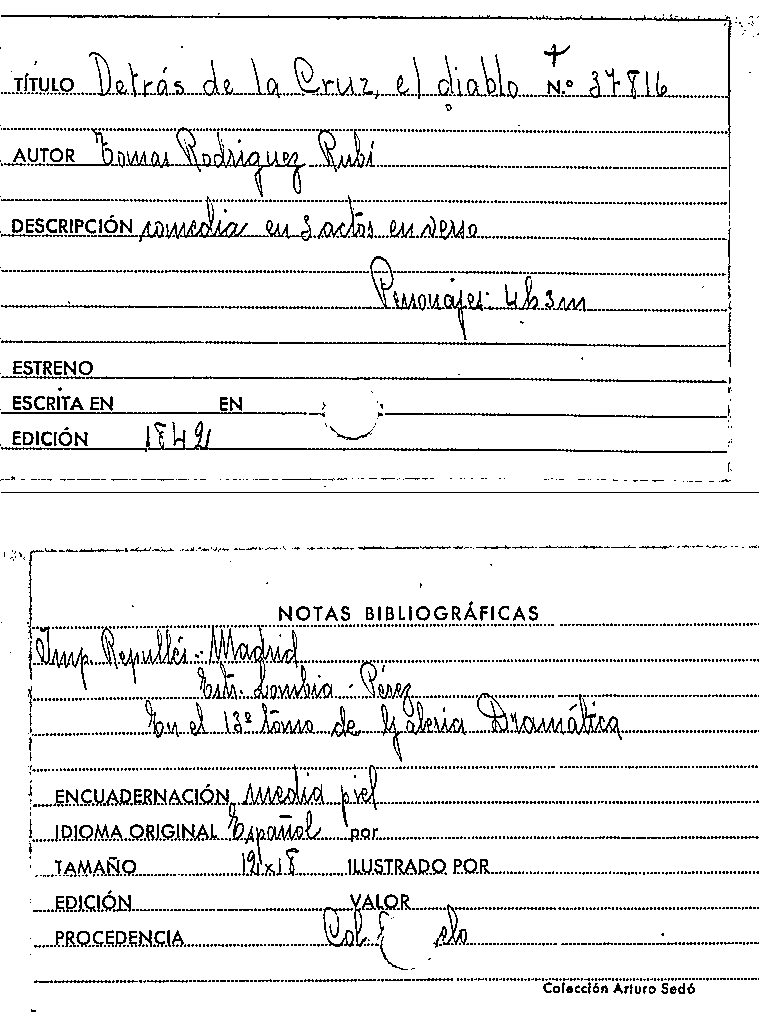 TÍTULO Detrás de la Cruz, el diablo N.º 37816
AUTOR Tomas Rodriguez Rubí
DESCRIPCIÓN comedia en 3 actos en verso
Personajes: 4h 3m
ESTRENO
ESCRITA EN EN
EDICIÓN 1842
NOTAS BIBLIOGRÁFICAS
Imp. Repullés - Madrid
Estr. Lombia - Pérez
En el 13º tomo de Galeria Dramática
ENCUADERNACIÓN media piel
IDIOMA ORIGINAL Español por
TAMAÑO 12x18 ILUSTRADO POR
EDICIÓN VALOR
PROCEDENCIA Col.
Colección Arturo Sedó